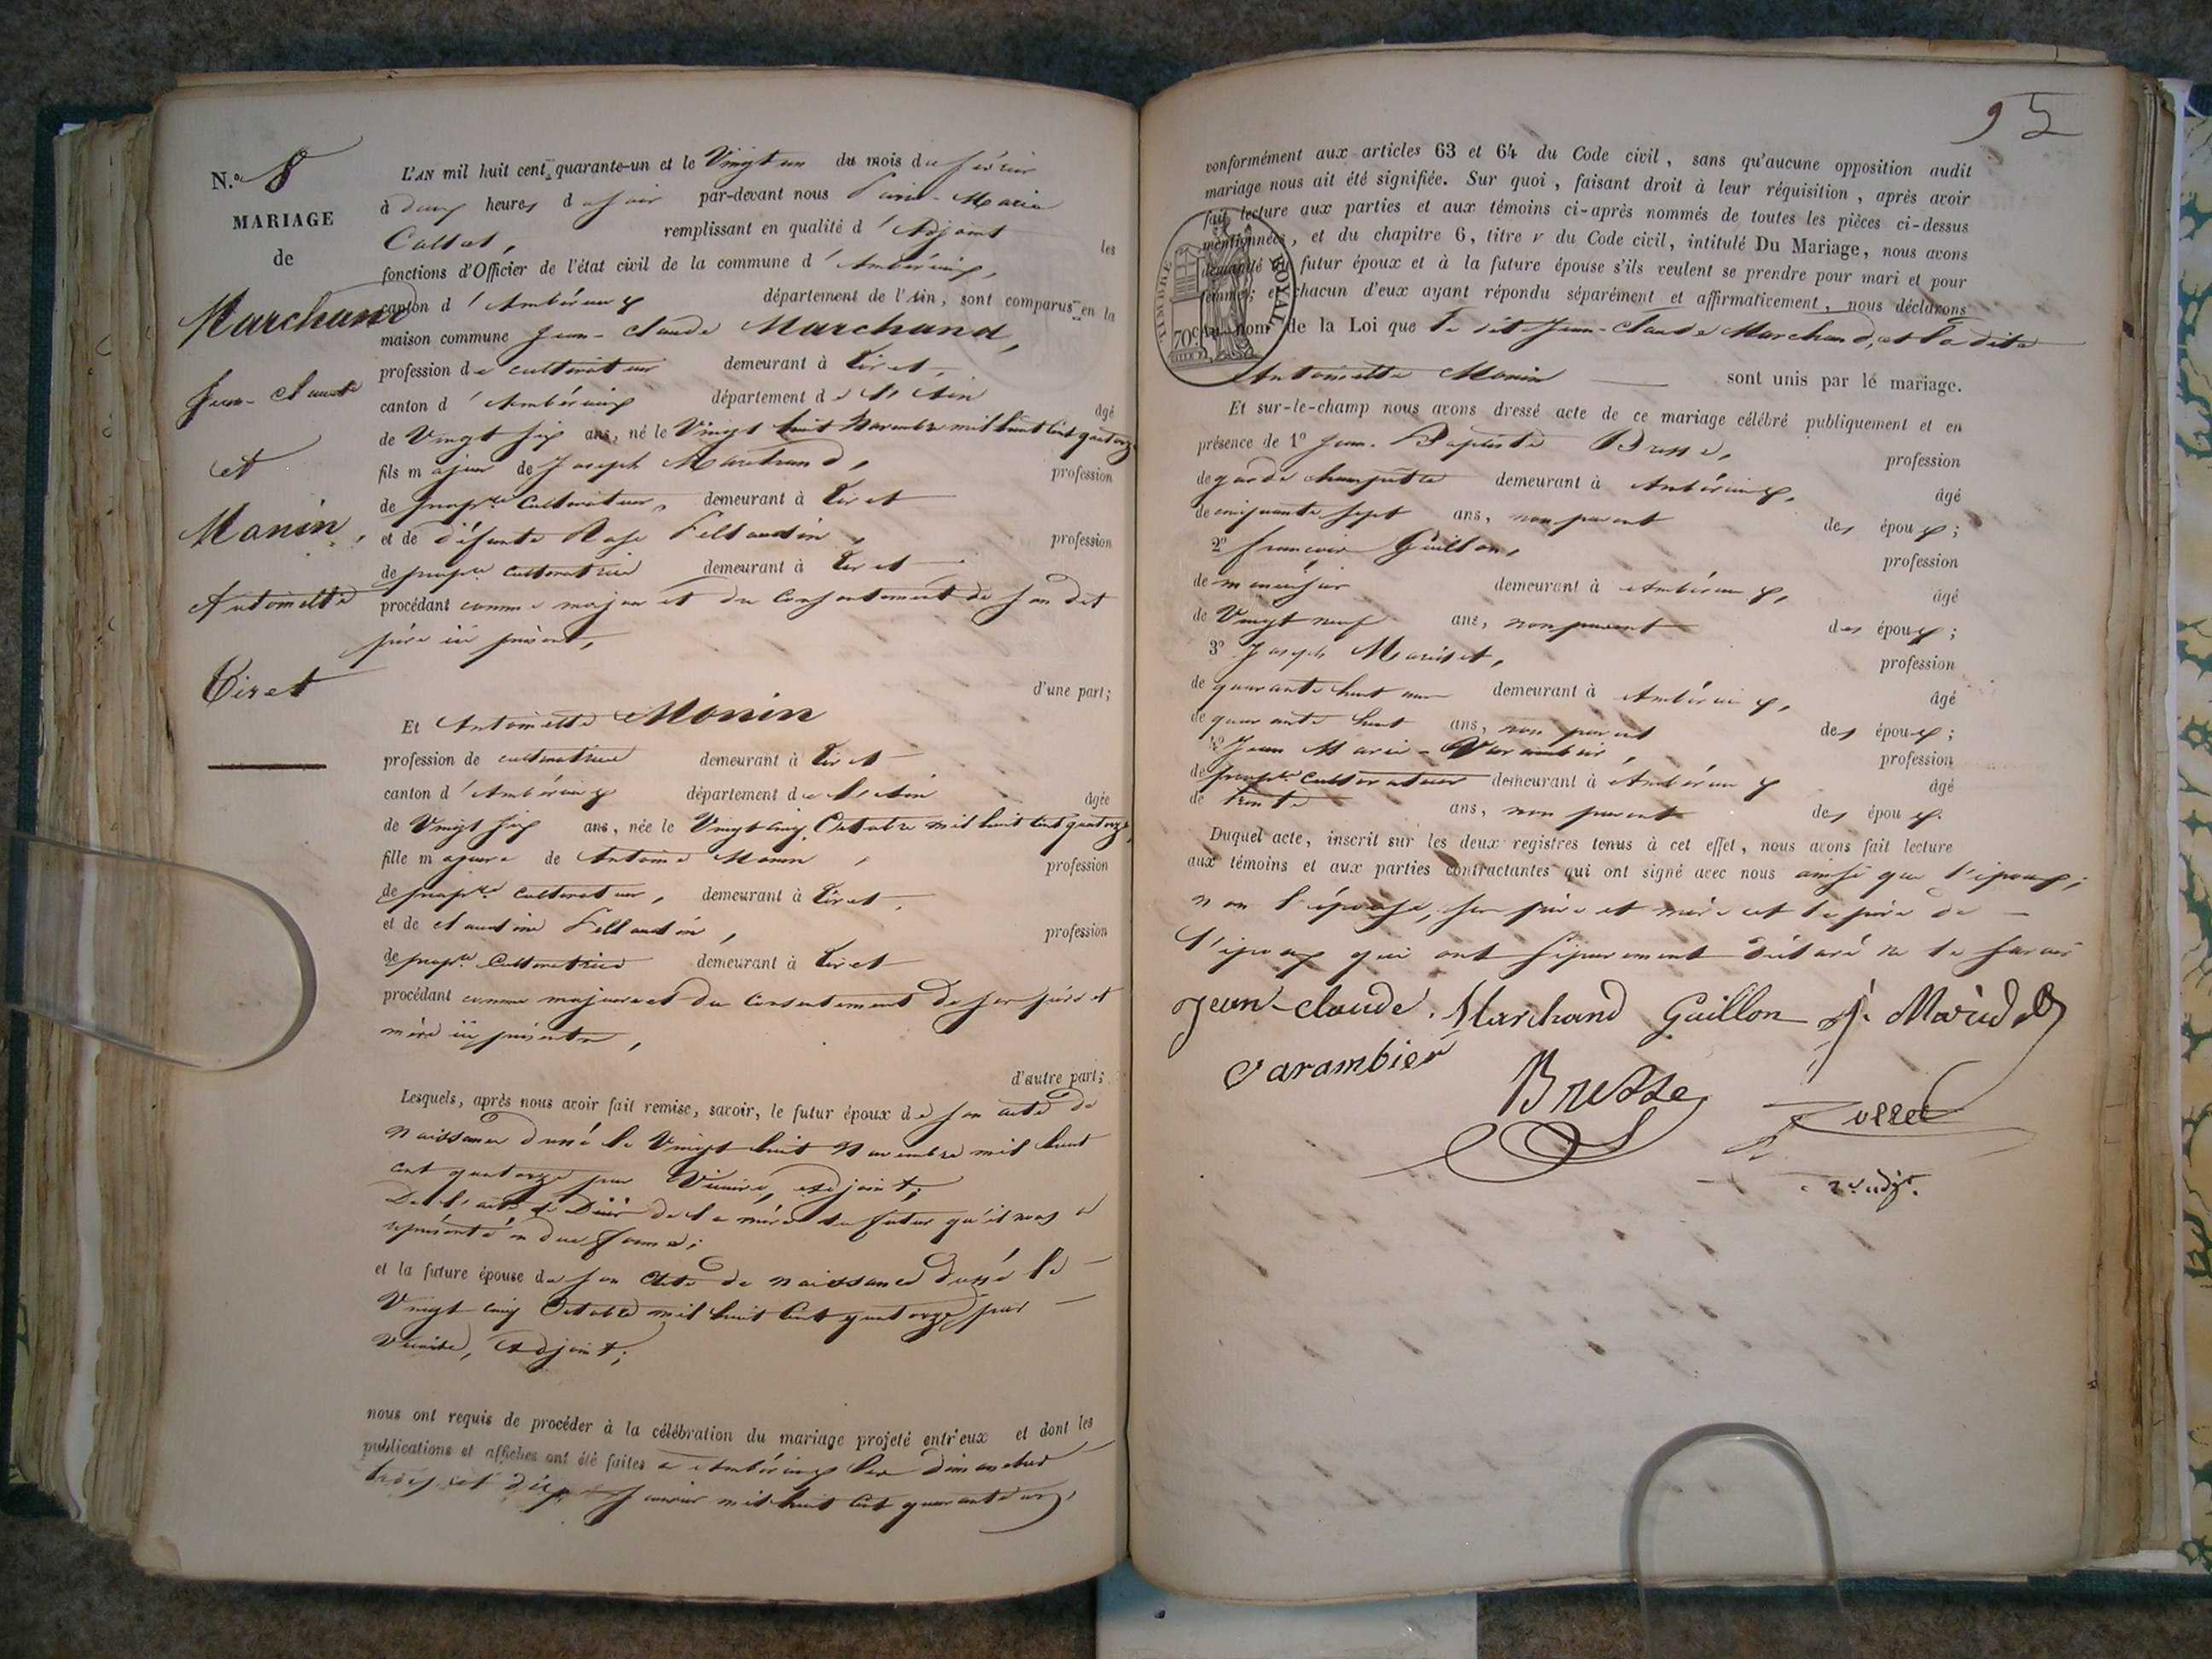 N.o 8
MARIAGE
de
Marchand
Jean-Claude
et
Monin,
Antoinette
Tiret
L'AN mil huit cent quarante-un et le Vingt un du mois de février
à deux heures du soir par-devant nous Marie
remplissant en qualité d'Adjoint les
fonctions d'Officier de l'état civil de la commune d'Ambérieux,
canton d'Ambérieux département de l'Ain, sont comparus en la
maison commune Jean-Claude Marchand,
profession de cultivateur demeurant à Tiret,
canton d'Ambérieux département de l'Ain âgé
de Vingt six ans, né le Vingt huit Novembre mil huit cent quatorze
fils majeur de Joseph Marchand, profession
de propre Cultivateur, demeurant à Tiret
et de défunte Rose Pellaudin, profession
de propre Cultivatrice demeurant à Tiret
procédant comme majeur et du consentement de son dit
père ici présent,
d'une part;
Et Antoinette Monin
profession de cultivatrice demeurant à Tiret
canton d'Ambérieux département de l'Ain âgée
de Vingt six ans, née le Vingt cinq Octobre mil huit cent quatorze,
fille majeure de Antoine Monin, profession
de propre Cultivateur, demeurant à Tiret,
et de Claudine Pellaudin, profession
de propre Cultivatrice demeurant à Tiret
procédant comme majeure et du consentement de ses père et
mère ici présents,
d'autre part;
Lesquels, après nous avoir fait remise, savoir, le futur époux de son acte de
Naissance dressé le Vingt huit Novembre mil huit
cent quatorze par Adjoint;
De l'acte de Décès de la mère du futur qu'il nous a
représenté en due forme;
et la future épouse de son Acte de Naissance dressé le
Vingt cinq Octobre mil huit Cent quatorze par
Adjoint;
nous ont requis de procéder à la célébration du mariage projeté entr'eux et dont les
publications et affiches ont été faites à Ambérieux les dimanches
trois et dix Janvier mil huit Cent quarante un,
95
conformément aux articles 63 et 64 du Code civil, sans qu'aucune opposition audit
mariage nous ait été signifiée. Sur quoi, faisant droit à leur réquisition, après avoir
fait lecture aux parties et aux témoins ci-après nommés de toutes les pièces ci-dessus
mentionnées, et du chapitre 6, titre V du Code civil, intitulé Du Mariage, nous avons
demandé au futur époux et à la future épouse s'ils veulent se prendre pour mari et pour
femme; et chacun d'eux ayant répondu séparément et affirmativement, nous déclarons
au nom de la Loi que le dit Jean-Claude Marchand, et la dite
TIMBRE ROYAL
70 c
Antoinette Monin sont unis par le mariage.
Et sur-le-champ nous avons dressé acte de ce mariage célébré publiquement et en
présence de 1o Jean-Baptiste Brusse, profession
de garde champêtre demeurant à Ambérieux, âgé
de cinquante sept ans, non parent des époux;
2o françois Guillon, profession
de menuisier demeurant à Ambérieux, âgé
de Vingt neuf ans, non parent des époux;
3o Joseph profession
de quarante huit ans demeurant à Ambérieux, âgé
de quarante huit ans, non parent des époux;
4o Jean Marie Varambier, profession
de propre Cultivateur demeurant à Ambérieux âgé
de trente ans, non parent des époux.
Duquel acte, inscrit sur les deux registres tenus à cet effet, nous avons fait lecture
aux témoins et aux parties contractantes qui ont signé avec nous ainsi que l'époux;
non l'épouse, ses père et mère et le père de
l'époux qui ont séparément déclaré ne le savoir
Jean-claude Marchand Guillon
Varambier
Brusse
2e adjt.